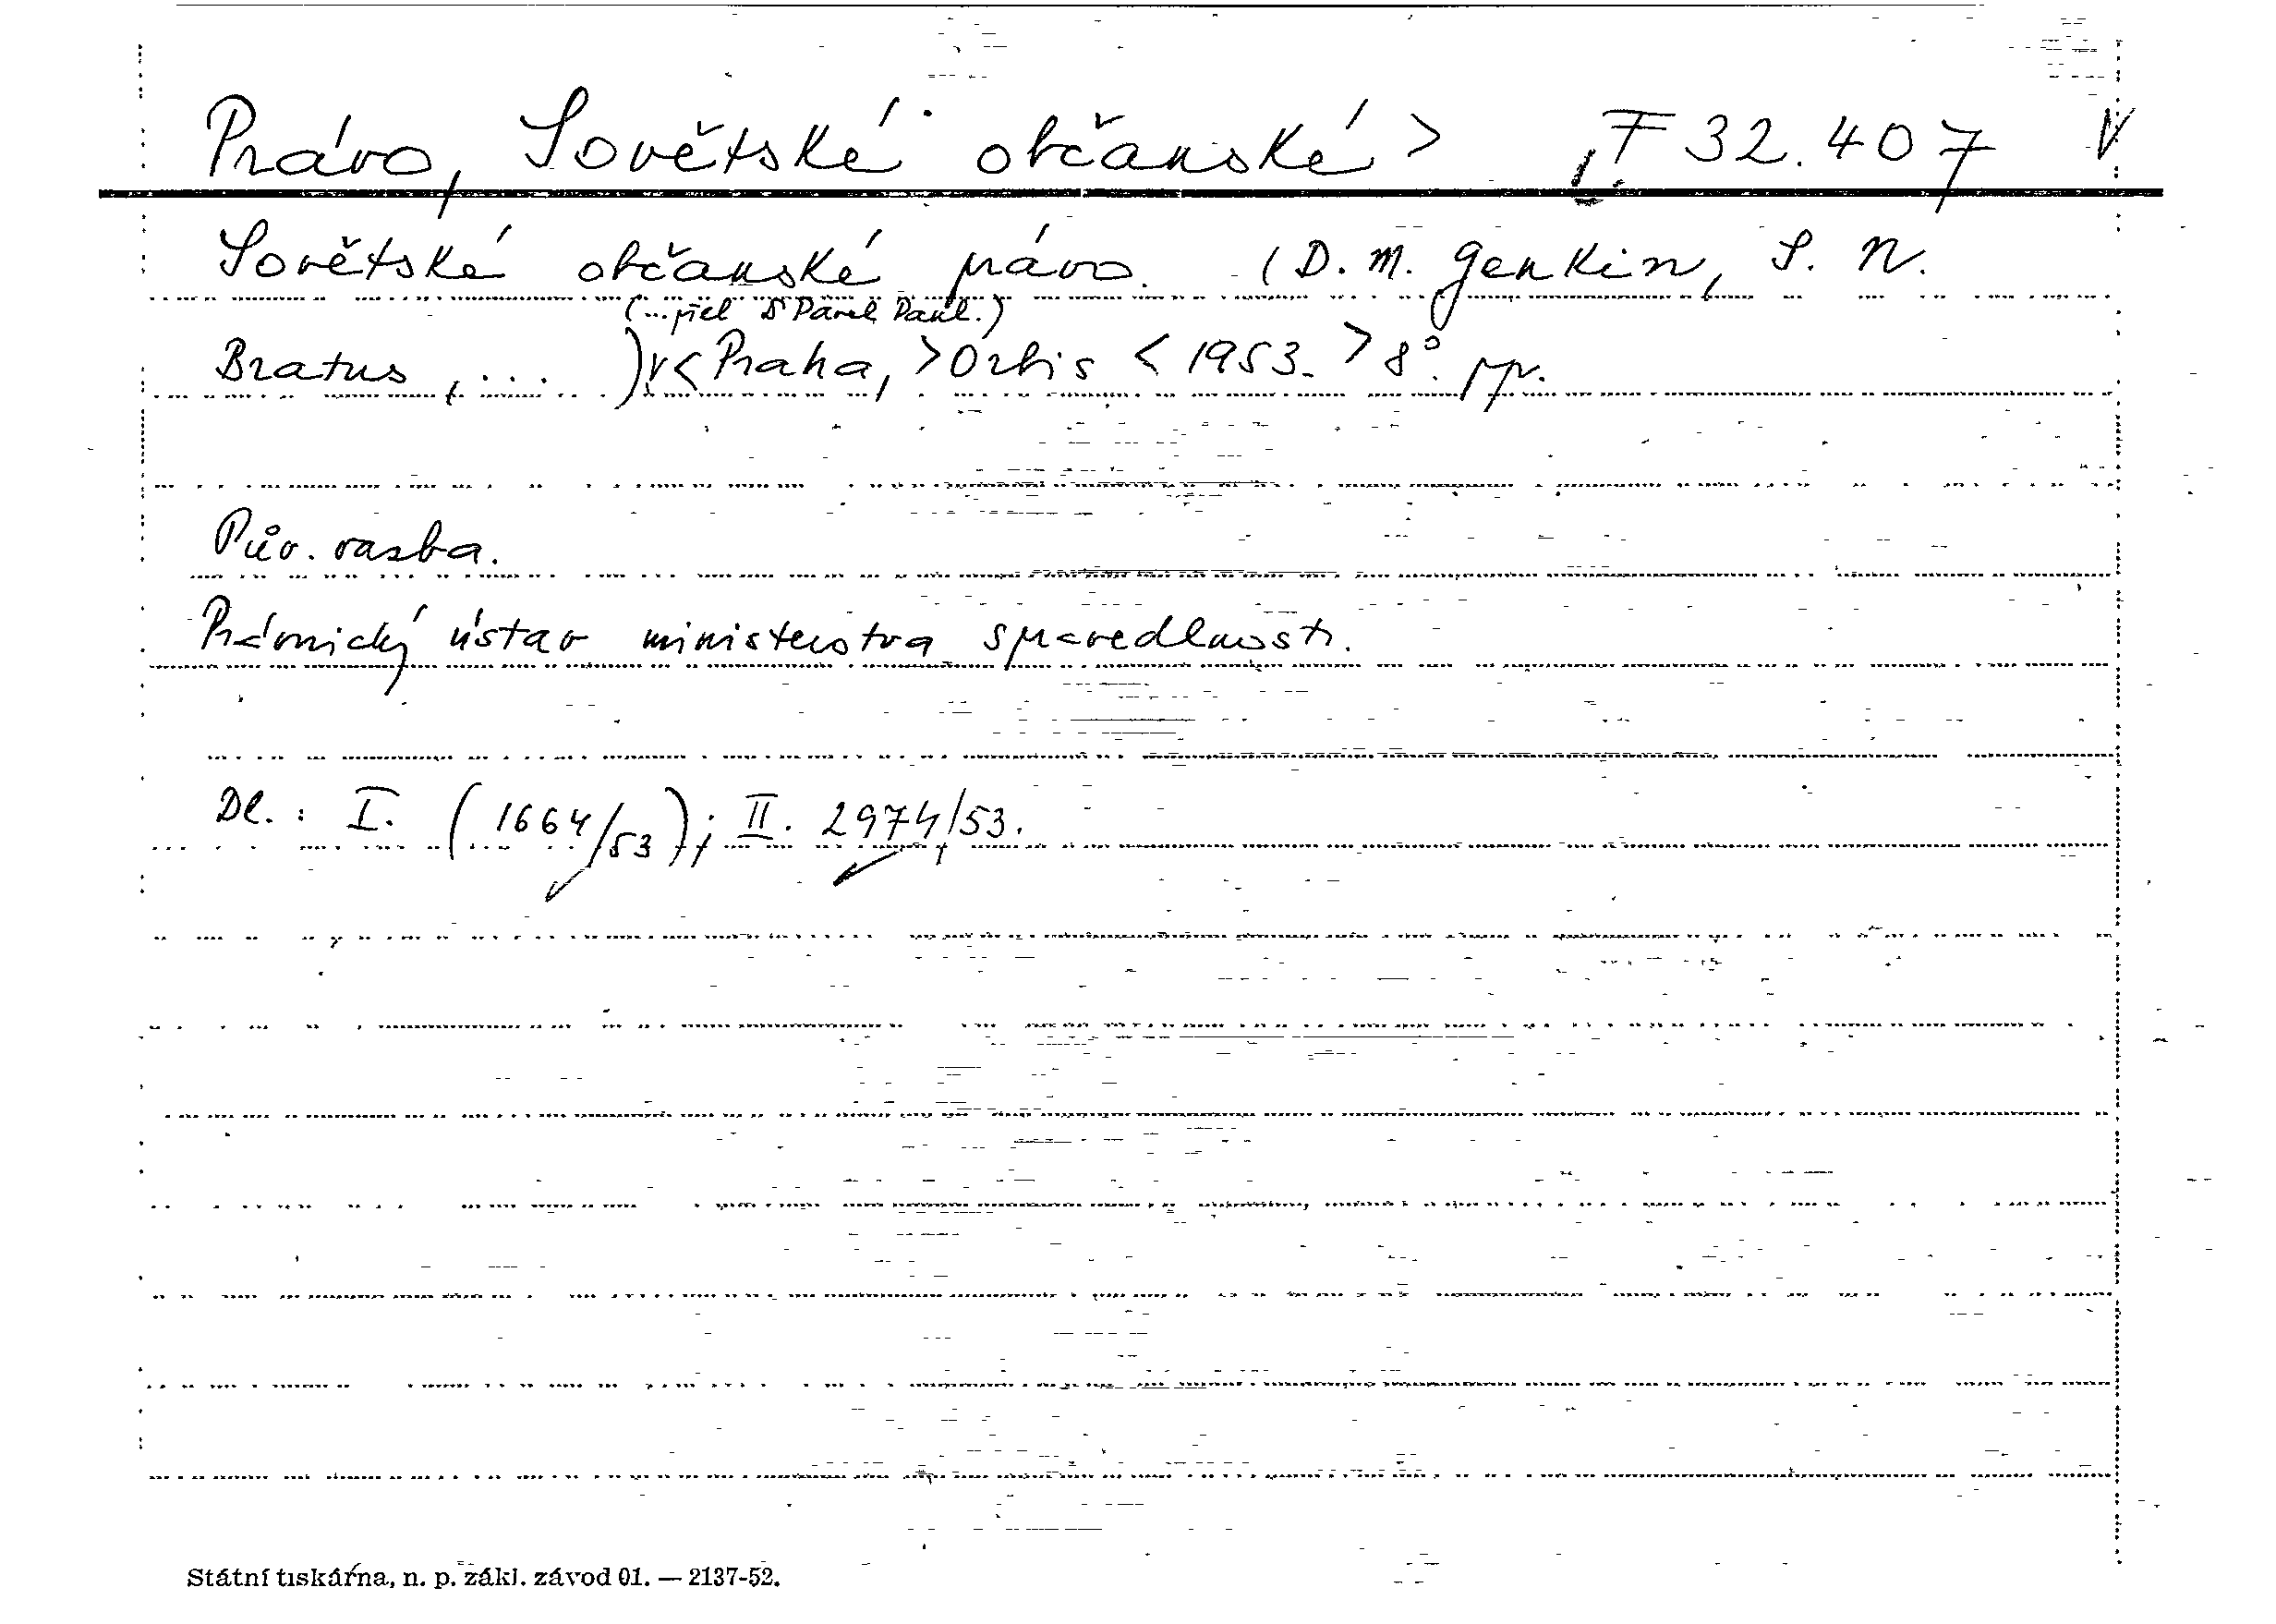 Právo, Sovětské občanské > F 32.407 V
Sovětské občanské právo. (D. M. Genkin, S. N.
(...přel D Pavel Paul.)
Bratus, ... )v< Praha, > Orbis < 1953. > 8°. pp.
Pův. vazba.
Právnický ústav ministerstva spravedlnosti.
Dl.: I. (1664/53); II. 2974/53.
Státní tiskárna, n. p. zákl. závod 01. — 2137-52.